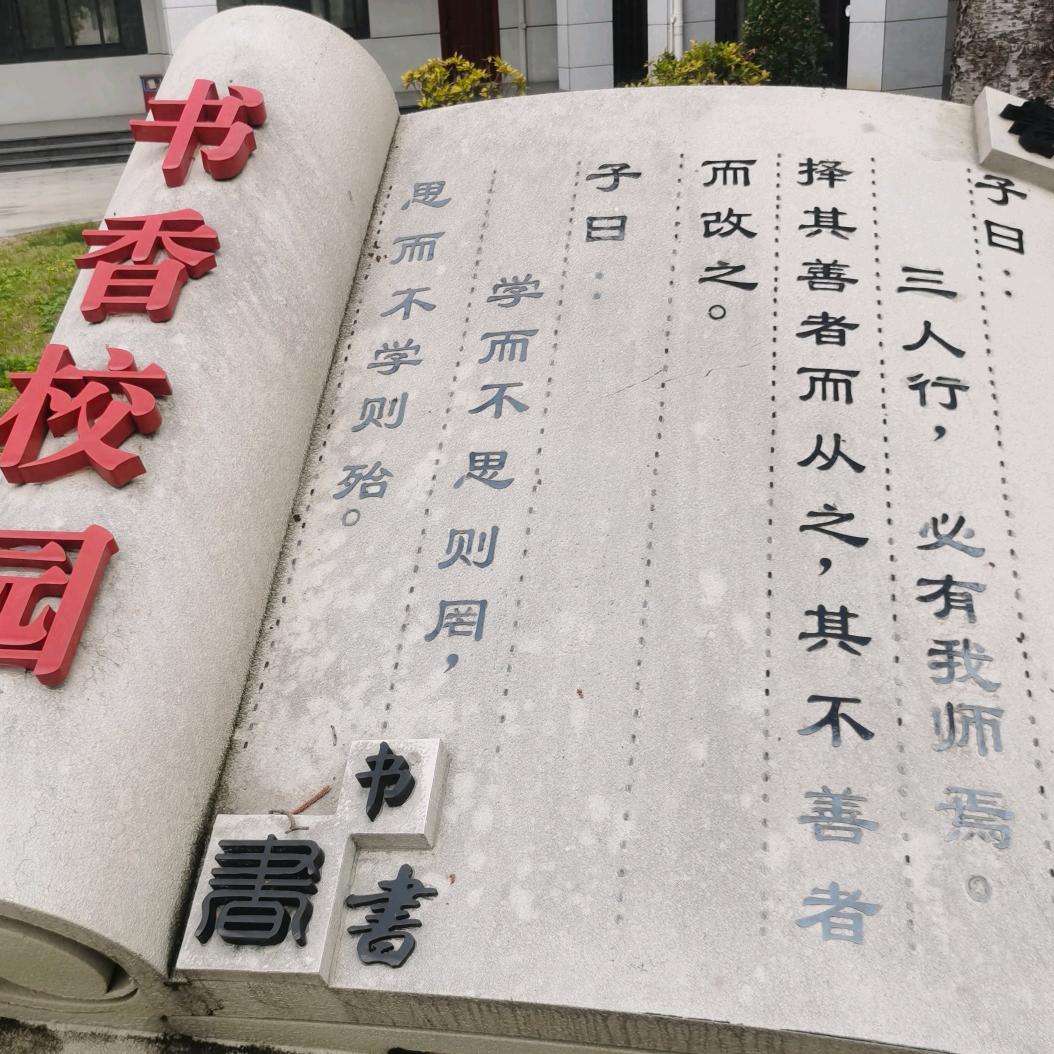 子曰：
三人行，必有我师焉。
择其善者而从之，其不善者
而改之。
子曰：
学而不思则罔，
思而不学则殆。
书香校园
书
書
書